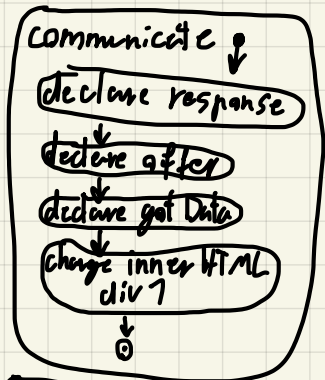 communicate
declare response
declare after
declare got Data
change inner HTML
div 1